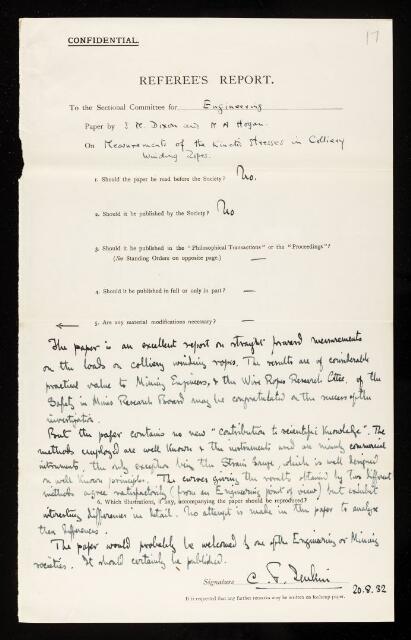 CONFIDENTIAL.
17
REFEREE'S REPORT.
To the Sectional Committee for Engineering
Paper by S. M. Dixon and M A Hogan.
On Measurements of the Kinetic Stresses in Colliery
Winding Ropes.
1. Should the paper be read before the Society? No.
2. Should it be published by the Society? No
3. Should it be published in the "Philosophical Transactions" or the "Proceedings"?
(See Standing Orders on opposite page.) —
4. Should it be published in full or only in part? —
5. Are any material modifications necessary? —
The paper is an excellent report on straight forward measurements
on the loads on colliery winding ropes. The results are of considerable
practical value to Mining Engineers, & the Wire Ropes Research Cttee. of the
Safety in Mines Research Board may be congratulated on the success of the
investigation.
But the paper contains no new "Contribution to scientific Knowledge". The
methods employed are well known & the instruments are mainly commercial
instruments, the only exception being the Strain Gauge, which is well designed
on well known principles. The curves giving the results obtained by two different
methods agree satisfactorily (from an Engineering point of view) but exhibit
6. Which illustrations, if any, accompanying the paper should be reproduced?
interesting differences in detail. No attempt is made in the paper to analyse
these differences.
The paper would probably be welcomed by one of the Engineering or Mining
societies. It should certainly be published.
Signature C. F. Jenkin
20.8.32
It is requested that any further remarks may be written on foolscap paper.